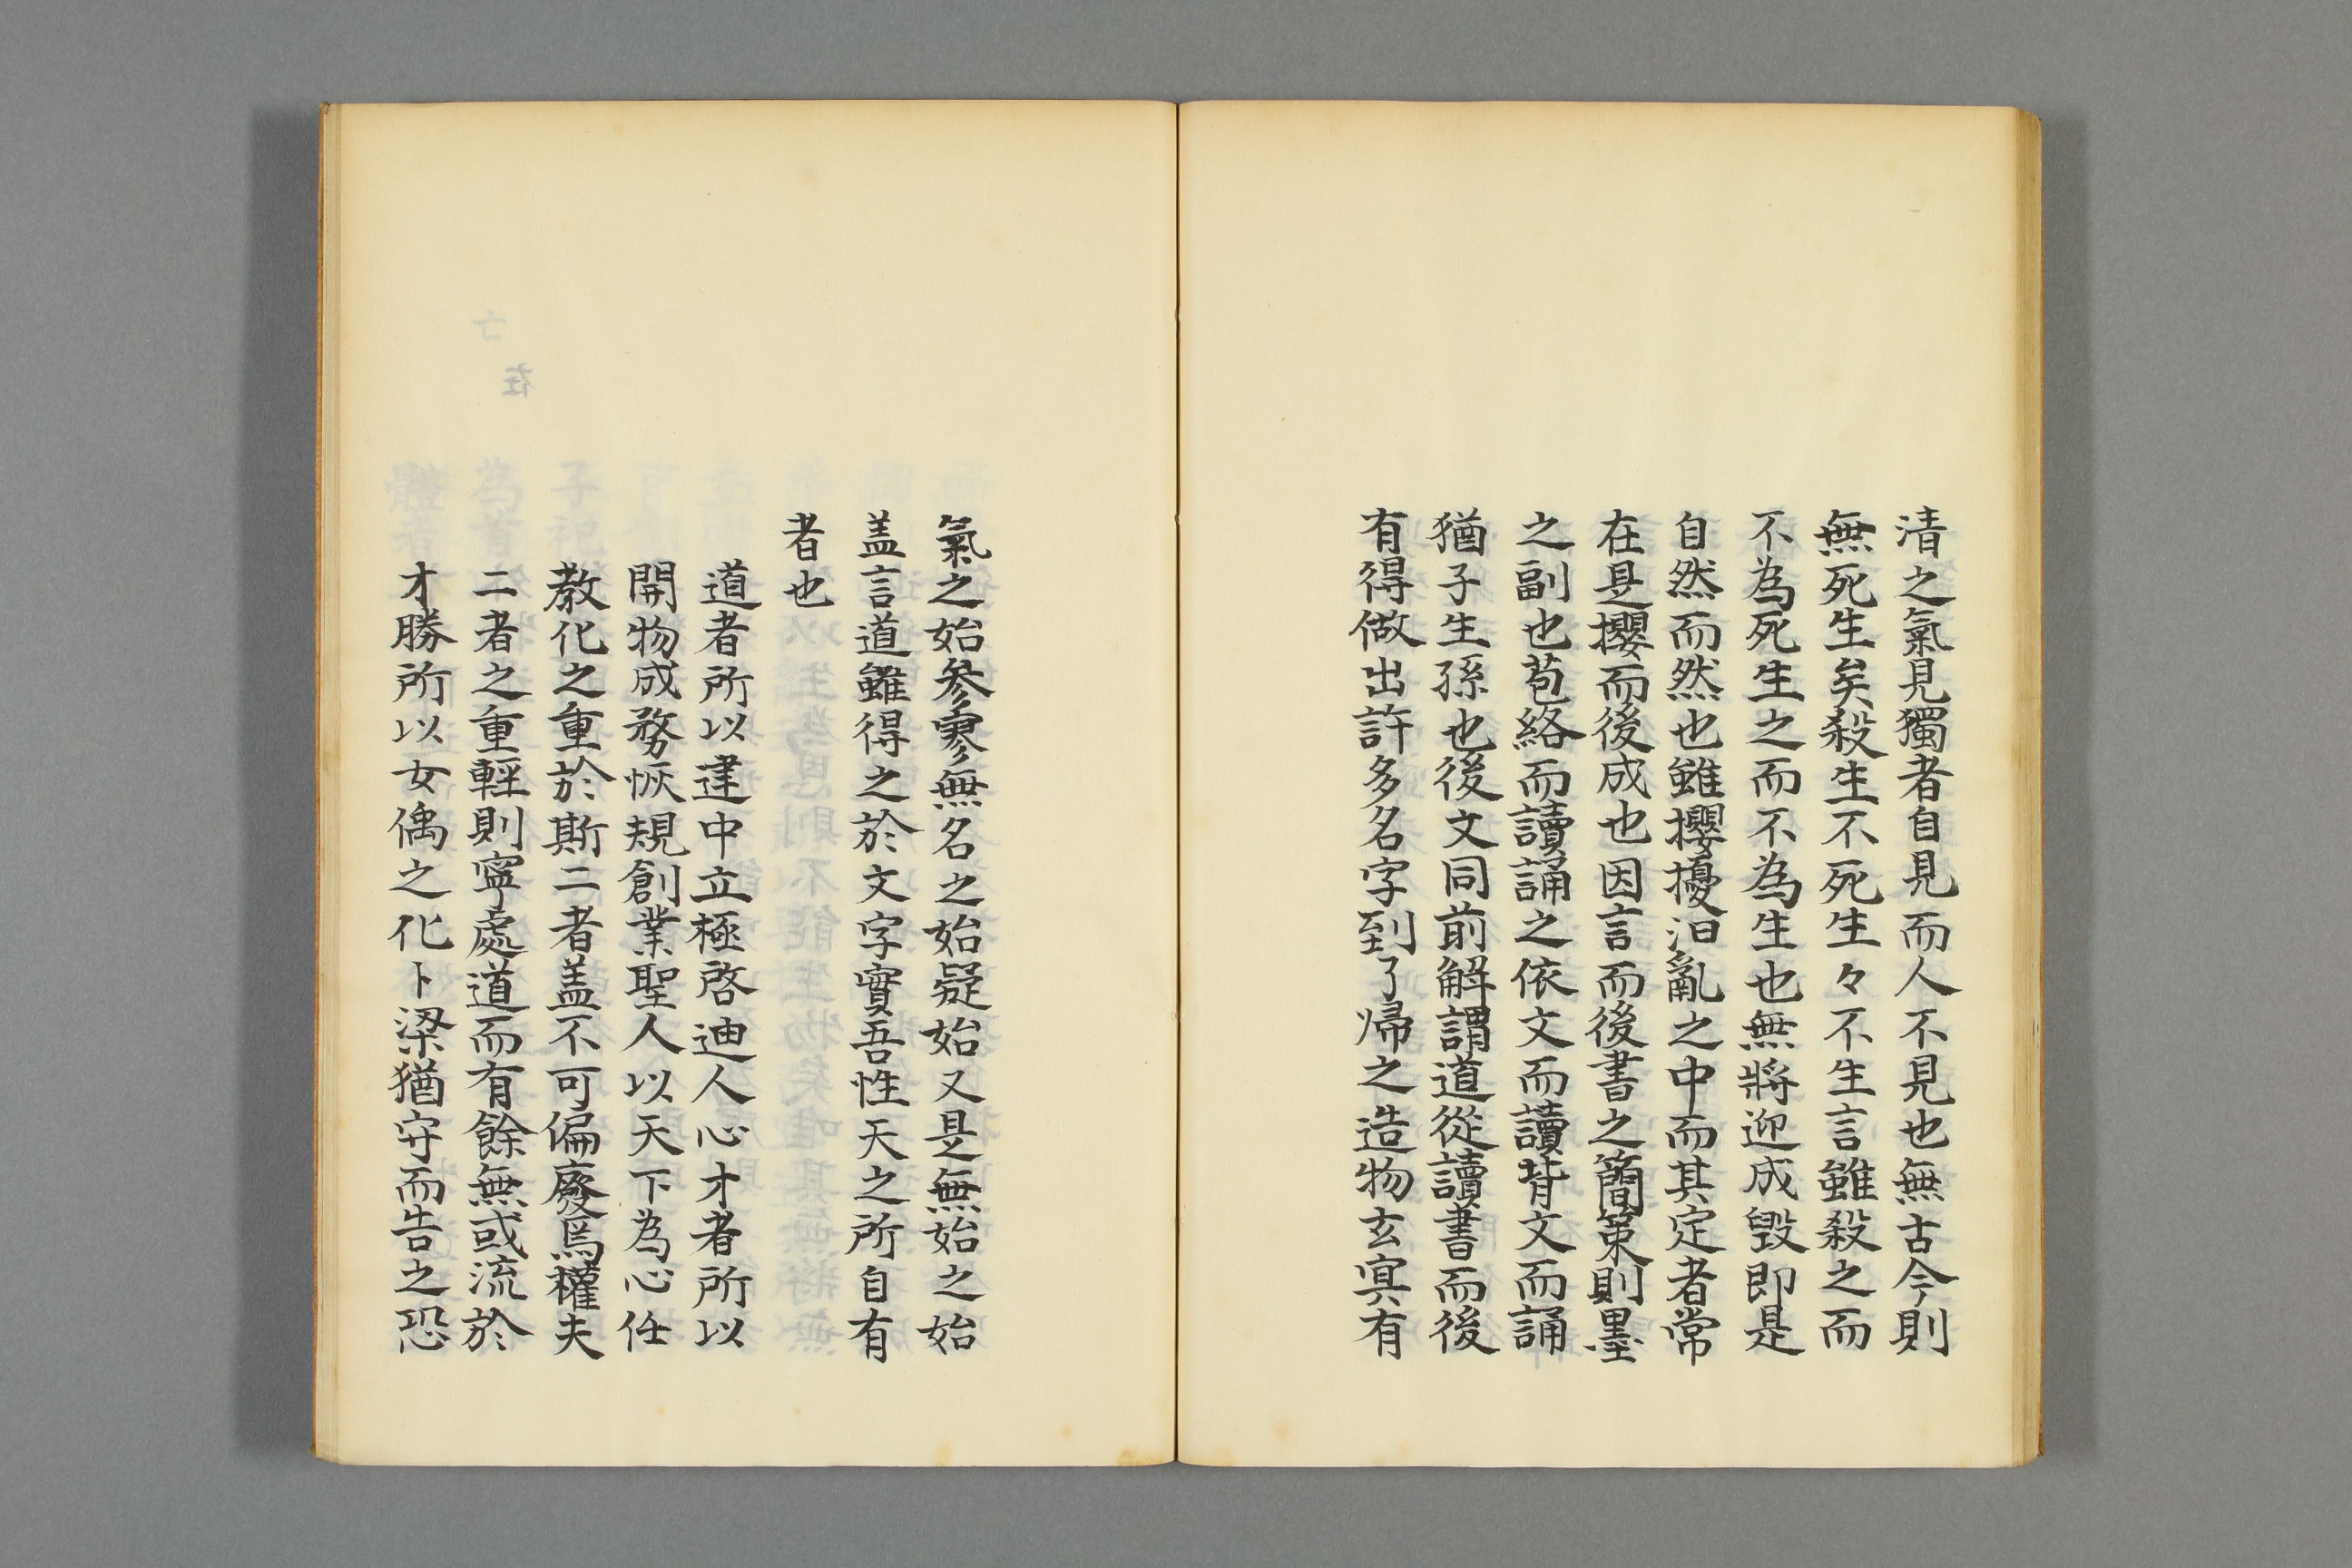 清之氣見獨者自見而人不見也無古今則
無死生矣殺生不死生々不生言雖殺之而
不為死生之而不為生也無將迎成毀即是
自然而然也雖攖擾汩亂之中而其定者常
在是攖而後成也因言而後書之簡策則墨
之副也苞絡而讀誦之依文而讀背文而誦
猶子生孫也後文同前解謂道從讀書而後
有得做出許多名字到了帰之造物玄冥有
氣之始参寥無名之始疑始又是無始之始
盖言道雖得之於文字實吾性天之所自有
者也
道者所以建中立極啓迪人心才者所以
開物成務恢規創業聖人以天下為心任
教化之重於斯二者盖不可偏廢焉權夫
二者之重輕則寧處道而有餘無或流於
才勝所以女偊之化卜梁猶守而告之恐